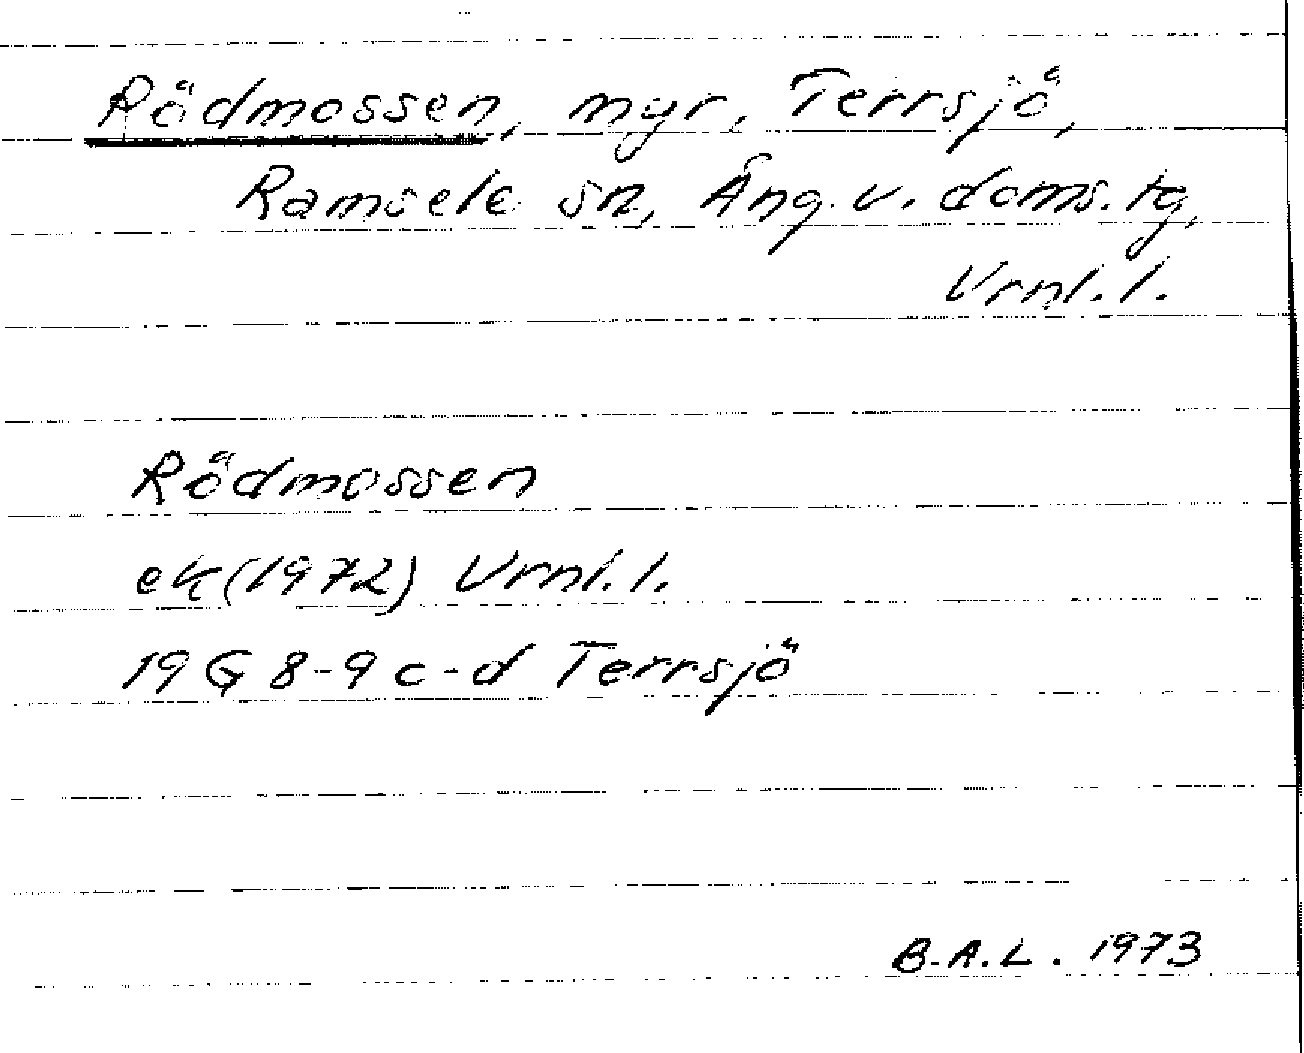 Rödmossen, myr, Terrsjö,
Ramsele sn, Ång. v. doms. tg,
Vrnl. l.
Rödmossen
ek (1972) Vrnl. l.
19 G 8-9 c-d Terrsjö
B.A.L. 1973